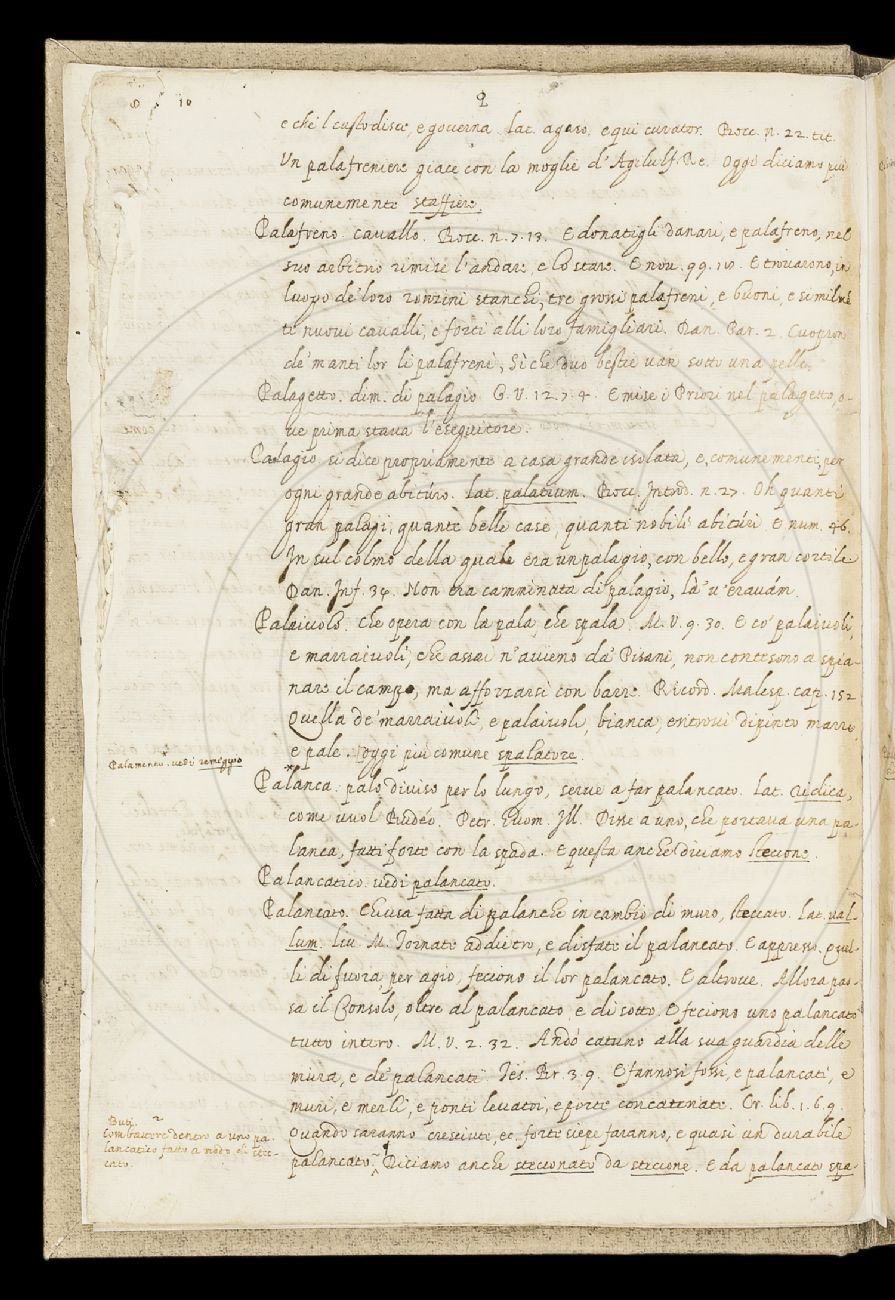 10
2
e che 'l custodisce, e governa. lat. agaso, equi curator. Bocc. n. 22. tit.
Un palafreniere giace con la moglie d'Agilulf Re. Oggi diciamo più
comunemente staffiere.
Palafreno. cavallo. Bocc. n. 7. 13. E donatigli danari, e palafreno, nel
suo arbitrio rimise l'andare, e lo stare. E nov. 99. E trovarono, in
luogo de' loro ronzini stanchi, tre grossi palafreni, e buoni, e similmē
te nuovi cavalli, e forti alli loro famigliari. Dan. Par. 2. Cuopron
de' manti lor li palafreni, Sì che duo bestie van sotto una pelle.
Palagetto. dim. di palagio G. V. 12. 7. 4. E mise i Priori nel palagetto, o-
ve prima stava l'esequitore.
Palagio. si dice propriamente a casa grande isolata, e, comunemente, per
ogni grande abitúro. lat. palatium. Bocc. Introd. n. 27. Oh quanti
gran palagi, quante belle case, quanti nobili abitúri. E num. 46.
In sul colmo della quale era un palagio, con bello, e gran cortile
Dan. Inf. 34. Non era camminata di palagio, là 'v' eravám.
Palaiuolo. che opera con la pala, che spala. M. V. 9. 30. E co' palaiuoli,
e marraiuoli, che assai n'avieno da' Pisani, non contesono a spia-
nare il campo, ma afforzarsi con barre. Ricord. Malesp. cap. 152
Quella de' marraiuoli, e palaiuoli, bianca, entrovi dipinto marre,
e pale. oggi più comune spalatore.
Palamento. vedi remeggio
*
Palanca. palo diviso per lo lungo, serve a far palancato. lat. ridica,
come vuol Budéo. Petr. Huom. Ill. Disse a uno, che portava una pa-
lanca, fatti forte con la spada. E questa anche diciamo stecione.
Palancatico. vedi palancato.
Palancato. Chiusa fatta di palanche in cambio di muro, steccato. lat. val-
lum. Liv. M. Tornate addietro, e disfate il palancato. E appresso. Quel-
li di fuora, per agio, feciono il lor palancato. E altrove. Allora pas-
sa il Consolo, oltre al palancato, e di sotto. E feciono uno palancato
tutto intero. M. V. 2. 32. Andò catuno alla sua guardia delle
mura, e de' palancati. Tes. Br. 3. 9. E fannosi fossi, e palancati, e
muri, e merli, e ponti levatoi, e porte concatenate. Cr. lib. 1. 6. 9.
Quando saranno cresciute, ec. forte siepe faranno, e quasi un durabile
palancato. Diciamo anche stecconato da stecione. E da palancato spa-
Buti.
combattere dentro a uno pa-
lancatico fatto a modo di stec-
cato.